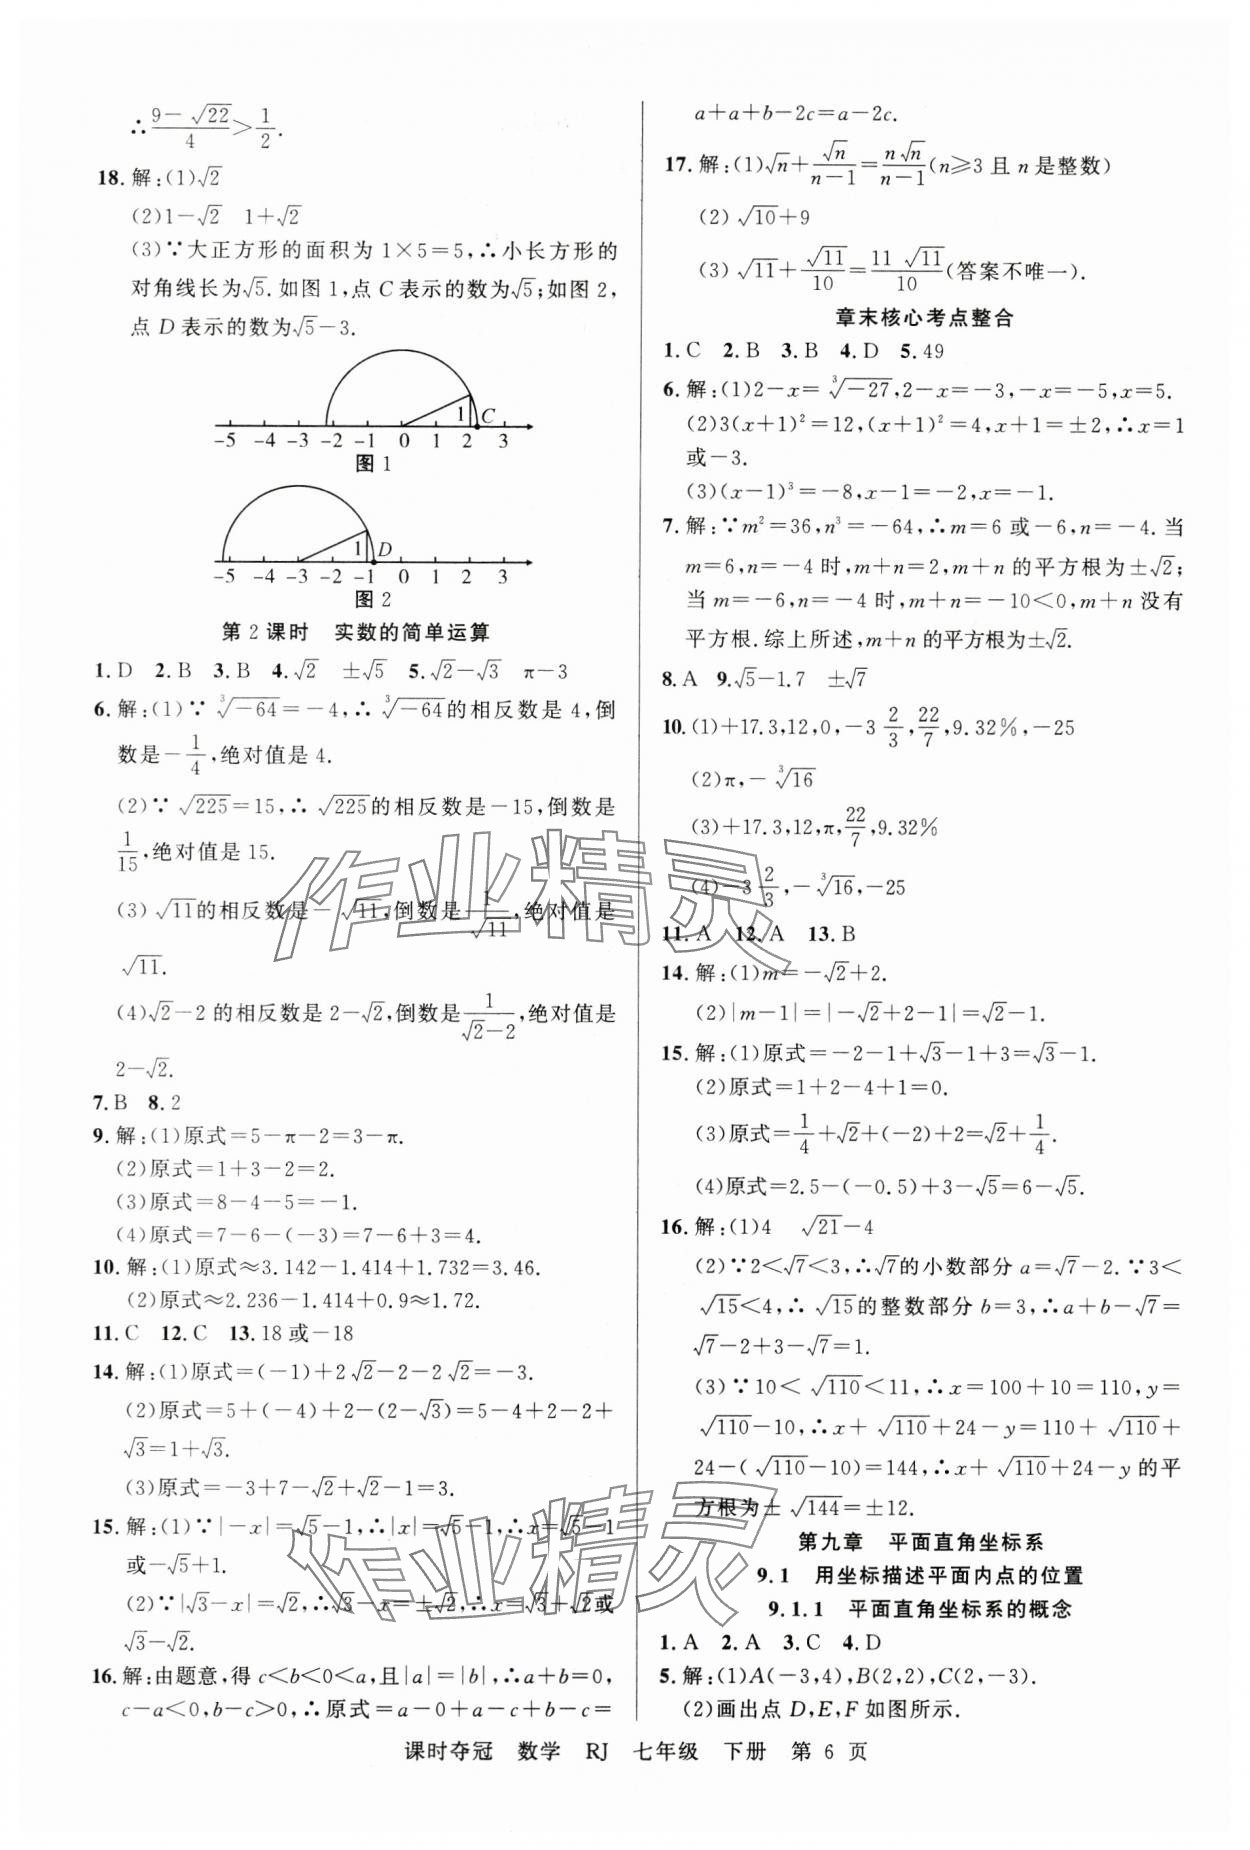 ∴(9－√22)/4＞1/2.
18.解:(1)√2
(2)1－√2　1＋√2
(3)∵大正方形的面积为1×5＝5,∴小长方形的
对角线长为√5.如图1,点C表示的数为√5;如图2,
点D表示的数为√5－3.
1 C
-5 -4 -3 -2 -1 0 1 2 3
图1
1 D
-5 -4 -3 -2 -1 0 1 2 3
图2
第2课时　实数的简单运算
1.D　2.B　3.B　4.√2　±√5　5.√2－√3　π－3
6.解:(1)∵∛－64＝－4,∴∛－64的相反数是4,倒
数是－1/4,绝对值是4.
(2)∵√225＝15,∴√225的相反数是－15,倒数是
1/15,绝对值是15.
(3)√11的相反数是－√11,倒数是1/√11,绝对值是
√11.
(4)√2－2的相反数是2－√2,倒数是1/(√2－2),绝对值是
2－√2.
7.B　8.2
9.解:(1)原式＝5－π－2＝3－π.
(2)原式＝1＋3－2＝2.
(3)原式＝8－4－5＝－1.
(4)原式＝7－6－(－3)＝7－6＋3＝4.
10.解:(1)原式≈3.142－1.414＋1.732＝3.46.
(2)原式≈2.236－1.414＋0.9≈1.72.
11.C　12.C　13.18或－18
14.解:(1)原式＝(－1)＋2√2－2－2√2＝－3.
(2)原式＝5＋(－4)＋2－(2－√3)＝5－4＋2－2＋
√3＝1＋√3.
(3)原式＝－3＋7－√2＋√2－1＝3.
15.解:(1)∵|－x|＝√5－1,∴|x|＝√5－1,∴x＝√5－1
或－√5＋1.
(2)∵|√3－x|＝√2,∴√3－x＝±√2,∴x＝√3＋√2或
√3－√2.
16.解:由题意,得c＜b＜0＜a,且|a|＝|b|,∴a＋b＝0,
c－a＜0,b－c＞0,∴原式＝a－0＋a－c＋b－c＝
a＋a＋b－2c＝a－2c.
17.解:(1)√n＋√n/(n－1)＝n√n/(n－1)(n≥3且n是整数)
(2)√10＋9
(3)√11＋√11/10＝11√11/10(答案不唯一).
章末核心考点整合
1.C　2.B　3.B　4.D　5.49
6.解:(1)2－x＝∛－27,2－x＝－3,－x＝－5,x＝5.
(2)3(x＋1)²＝12,(x＋1)²＝4,x＋1＝±2,∴x＝1
或－3.
(3)(x－1)³＝－8,x－1＝－2,x＝－1.
7.解:∵m²＝36,n³＝－64,∴m＝6或－6,n＝－4.当
m＝6,n＝－4时,m＋n＝2,m＋n的平方根为±√2;
当m＝－6,n＝－4时,m＋n＝－10＜0,m＋n没有
平方根.综上所述,m＋n的平方根为±√2.
8.A　9.√5－1.7　±√7
10.(1)＋17.3,12,0,－3 2/3,22/7,9.32%,－25
(2)π,－∛16
(3)＋17.3,12,π,22/7,9.32%
(4)－3 2/3,－∛16,－25
11.A　12.A　13.B
14.解:(1)m＝－√2＋2.
(2)|m－1|＝|－√2＋2－1|＝√2－1.
15.解:(1)原式＝－2－1＋√3－1＋3＝√3－1.
(2)原式＝1＋2－4＋1＝0.
(3)原式＝1/4＋√2＋(－2)＋2＝√2＋1/4.
(4)原式＝2.5－(－0.5)＋3－√5＝6－√5.
16.解:(1)4　√21－4
(2)∵2＜√7＜3,∴√7的小数部分a＝√7－2.∵3＜
√15＜4,∴√15的整数部分b＝3,∴a＋b－√7＝
√7－2＋3－√7＝1.
(3)∵10＜√110＜11,∴x＝100＋10＝110,y＝
√110－10,∴x＋√110＋24－y＝110＋√110＋
24－(√110－10)＝144,∴x＋√110＋24－y的平
方根为±√144＝±12.
第九章　平面直角坐标系
9.1　用坐标描述平面内点的位置
9.1.1　平面直角坐标系的概念
1.A　2.A　3.C　4.D
5.解:(1)A(－3,4),B(2,2),C(2,－3).
(2)画出点D,E,F如图所示.
课时夺冠　数学　RJ　七年级　下册　第6页
作业精灵
作业精灵